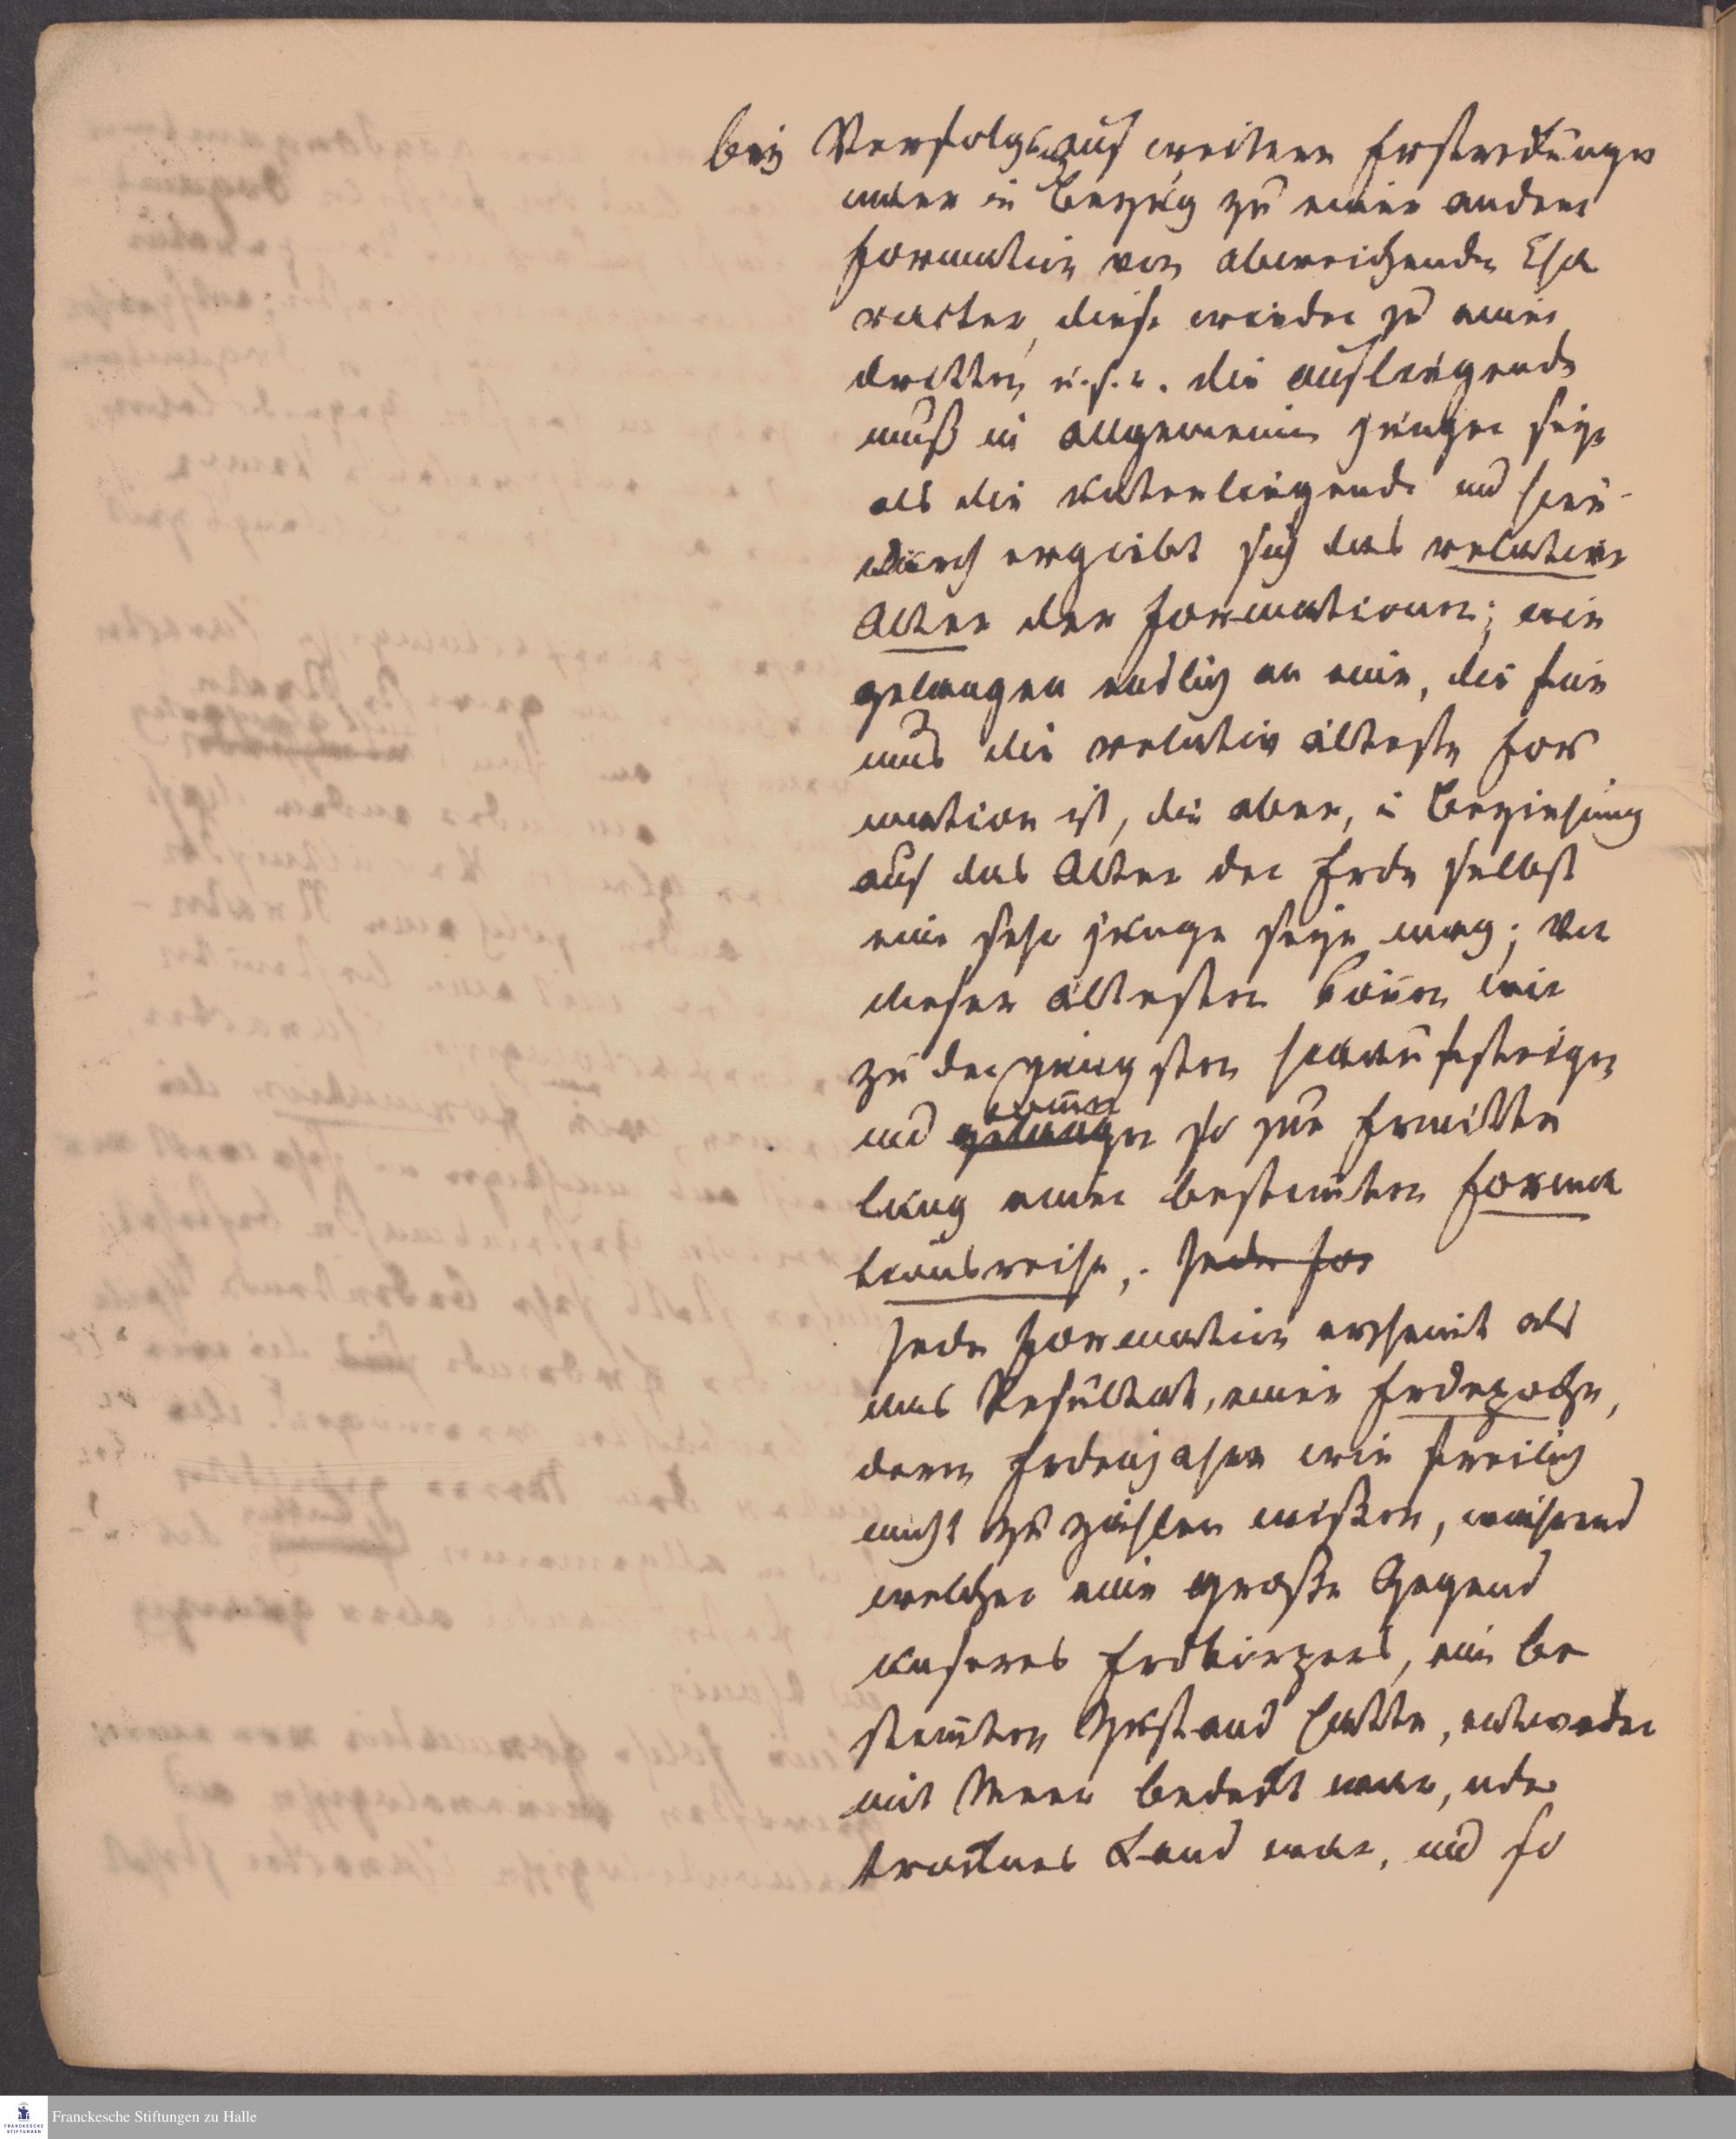 bey Verfolgung auf weitere Erstreckungen
immer in Bezug zu einer andern
Formation von abweichenden Cha
racter, diese wieder zu einer
dritten u.s.w. die aufliegende
muß in allgemeinen jünger seyn
als die unterliegende und hier-
durch ergiebt sich das relative
Alter der Formationen; wir
gelangen endlich an eine, die für
uns die relativ älteste For
mation ist, die aber, in Beziehung
auf das Alter der Erde selbst
eine sehr junge seyn mag; Von
dieser ältesten können wir
zu der jüngsten heraufsteigen
und gelangen kommen so zur Ermitte
lung einer bestimmten Forma
tionsreihe. Jede For
Jede Formation erscheint als
das Resultat, einer Erdepoche,
deren Erdenjahre wir freilich
nicht zu zählen wissen, während
welcher eine große Gegend
unseres Erdkörpers, ein be
stimmten Zustand hatte, entweder
mit Meer bedeckt war, oder
trocknes Land war, und so
Franckesche Stiftungen zu Halle